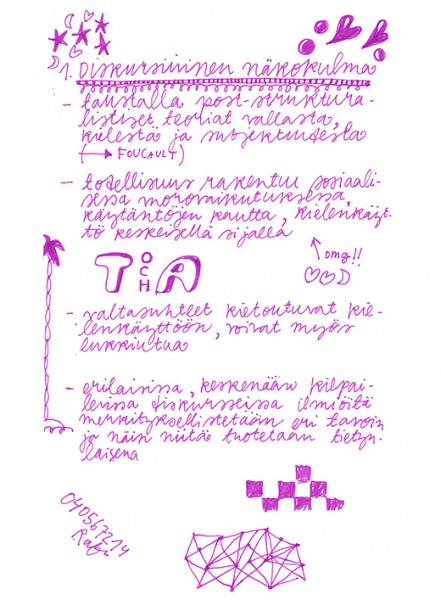 1. Diskursiivinen näkökulma
- taustalla post-struktura-
listiset teoriat vallasta,
kielestä ja subjektiudesta
(→ FOUCAULT)
- todellisuus rakentuu sosiaali-
sessa vuorovaikutuksessa,
käytäntöjen kautta, kielenkäyt-
tö keskeisellä sijalla
omg!!
T OCH A
- valtasuhteet kietoutuvat kie-
lenkäyttöön, voivat myös
lukkiutua
- erilaisissa, keskenään kilpai-
levissa diskursseissa ilmiöitä
merkityksellistetään eri tavoin
ja näin niitä tuotetaan tietyn-
laisena